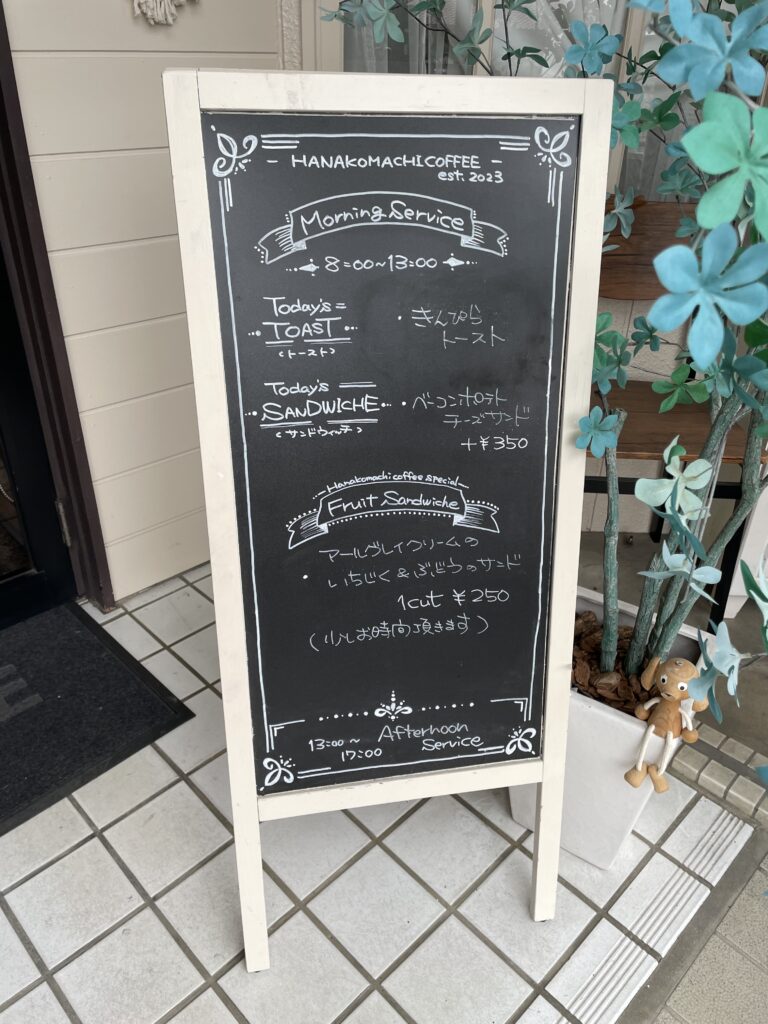 - HANAKOMACHI COFFEE -
est. 2023
Morning Service
8:00~13:00
Today's
TOAST
<トースト>
・きんぴら
トースト
Today's
SANDWICHE
<サンドウィッチ>
・ベーコンポロネ
チーズサンド
+¥350
Hanakomachi coffee special
Fruit Sandwiche
アールグレイクリームの
・いちじく&ぶどうのサンド
1cut ¥250
(少しお時間頂きます)
13:00~
17:00
Afternoon
Service